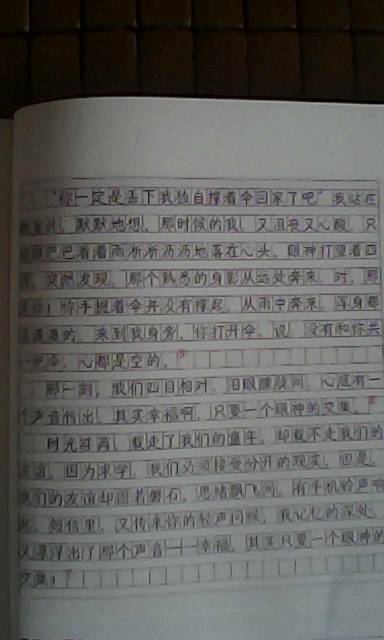 “你一定是丢下我独自撑着伞回家了吧”我站在
教室外，默默地想。那时候的我，又沮丧又心酸，只
眼巴巴看着雨淅淅沥沥地落在心头，眼神打量着四
周，突然发现，那个熟悉的身影从远处奔来，对，那
是你！你手握着伞并没有撑起，从雨中奔来，浑身都
湿漉漉的，来到我身旁，你打开伞，说，没有和你共
一把伞，心都是空的。
那一刻，我们四目相对，泪眼朦胧间，心底有一
个声音传出，其实幸福啊，只要一个眼神的交集。
时光荏苒，载走了我们的童年，却载不走我们的
友谊。因为求学，我们必须接受分开的现实，但是，
我们的友谊却固若磐石。思绪飘飞间，有手机铃声响
起，短信里，又传来你的轻声问候，我记忆的深处，
又漂浮出了那个声音——幸福，其实只要一个眼神的
交集！